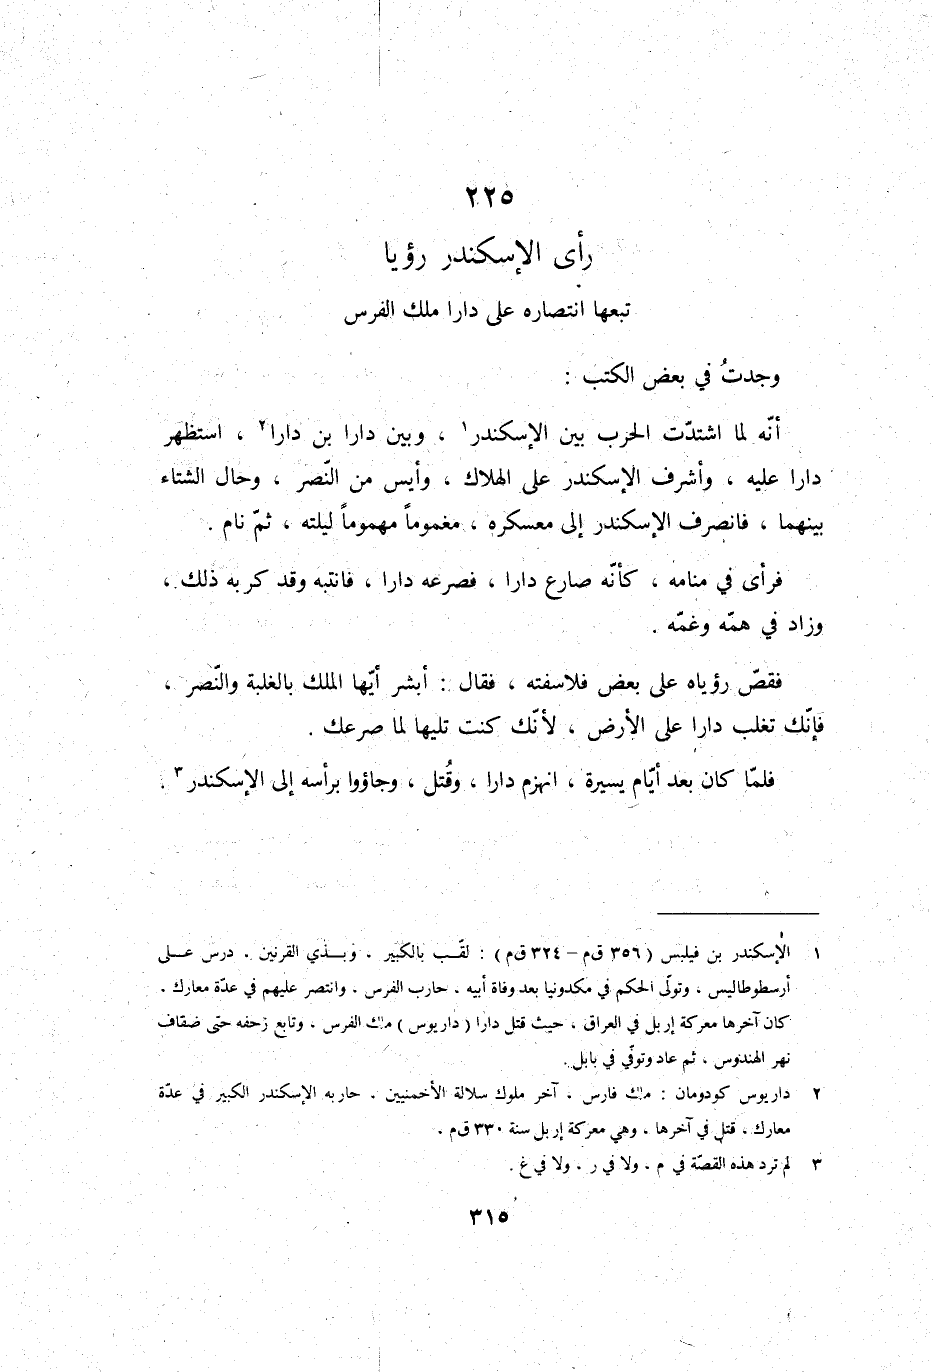 ٢٢٥
رأى الإسكندر رؤيا
تبعها انتصاره على دارا ملك الفرس
وجدتُ في بعض الكتب :
أنّه لما اشتدّت الحرب بين الإسكندر١ ، وبين دارا بن دارا٢ ، استظهر
دارا عليه ، وأشرف الإسكندر على الهلاك ، وأيس من النّصر ، وحال الشتاء
بينهما ، فانصرف الإسكندر إلى معسكره ، مغموماً مهموماً ليلته ، ثمّ نام .
فرأى في منامه ، كأنّه صارع دارا ، فصرعه دارا ، فانتبه وقد كربه ذلك ،
وزاد في همّه وغمّه .
فقصّ رؤياه على بعض فلاسفته ، فقال : أبشر أيّها الملك بالغلبة والنّصر ،
فإنّك تغلب دارا على الأرض ، لأنّك كنت تليها لما صرعك .
فلمّا كان بعد أيّام يسيرة ، انهزم دارا ، وقُتل ، وجاؤوا برأسه إلى الإسكندر٣ .
١ الإسكندر بن فيلبس ( ٣٥٦ ق م – ٣٢٤ ق م ) : لقّب بالكبير ، وبذي القرنين ، درس على
أرسطوطاليس ، وتولّى الحكم في مكدونيا بعد وفاة أبيه ، حارب الفرس ، وانتصر عليهم في عدّة معارك ،
كان آخرها معركة إربل في العراق ، حيث قتل دارا ( داريوس ) ملك الفرس ، وتابع زحفه حتى ضفاف
نهر الهندوس ، ثم عاد وتوفّي في بابل .
٢ داريوس كودومان : ملك فارس ، آخر ملوك سلالة الأخمنيين ، حاربه الإسكندر الكبير في عدّة
معارك ، قتل في آخرها ، وهي معركة إربل سنة ٣٣٠ ق م .
٣ لم ترد هذه القصّة في م ، ولا في ر ، ولا في غ .
٣١٥